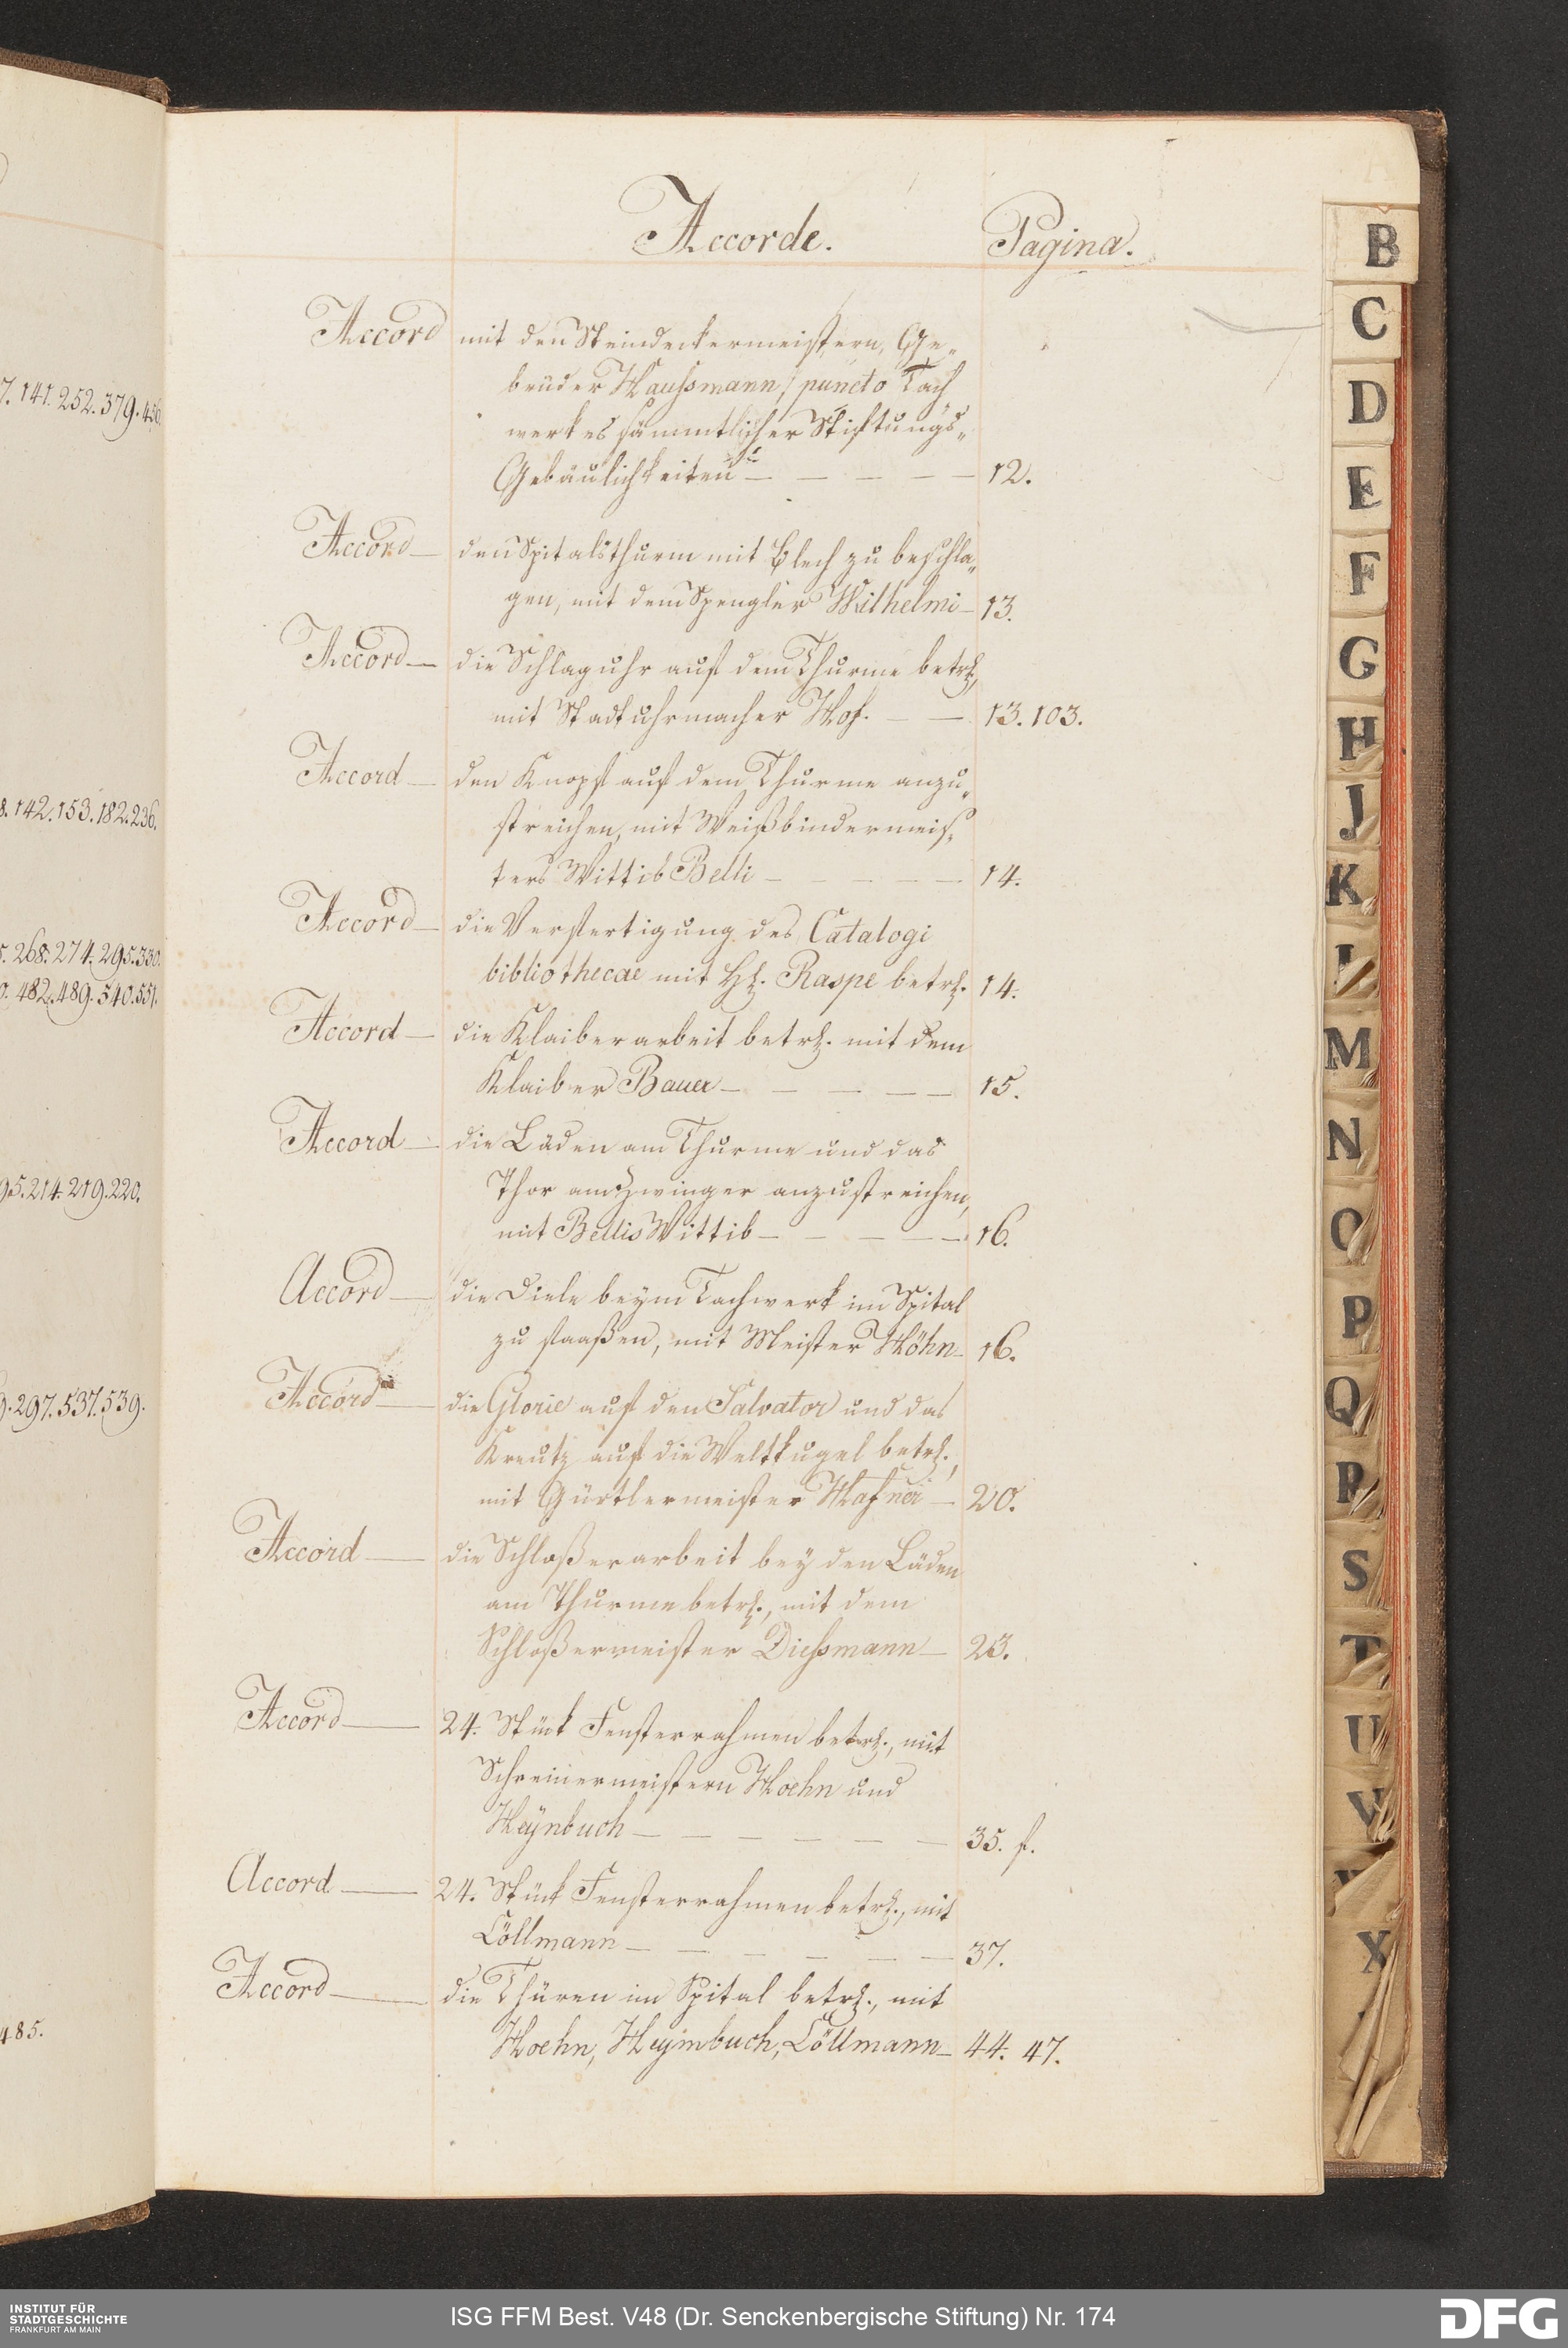 7. 141. 252. 379. 456.
8. 142. 153. 182. 236.
5. 268. 274. 295. 330.
0. 482. 489. 540. 551.
95. 214. 219. 220.
9. 297. 537. 539.
485.
Accorde. Pagina.
Accord mit den Steindeckermeistern, Ge-
brüder Haussmann, puncto Tach
werkes sämmtlicher Stiftungs-
Gebäulichkeiten — — — — 12.
Accord — den Spitalsthurm mit Blech zu beschla-
gen, mit dem Spengler Wilhelmi — 13.
Accord — die Schlaguhr auf dem Thurme betr.,
mit Stadtuhrmacher Hof. — — 13. 103.
Accord — den Knopf auf dem Thurme anzu-
streichen, mit Weißbindermeis-
ters Wittib Belli — — — — 14.
Accord — die Verfertigung des Catalogi
bibliothecae mit H. Raspe betr. 14.
Accord — die Klaiberarbeit betr. mit dem
Klaiber Bauer — — — — — 15.
Accord — die Läden am Thurme und das
Thor am Zwinger anzustreichen,
mit Bellis Wittib — — — — — 16.
Accord — die Diele beym Tachwerk im Spital
zu staaßen, mit Meister Höhn — 16.
Accord — die Glorie auf den Salvator und das
Kreutz auf die Weltkugel betr.,
mit Gürtlermeister Hafner — 20.
Accord — die Schloßerarbeit bey den Läden
am Thurme betr., mit dem
Schloßermeister Diessmann — 23.
Accord — 24. Stück Fensterrahmen betr., mit
Schreinermeistern Hoehn und
Heynbuch — — — — — — 35. f.
Accord — 24. Stück Fensterrahmen betr., mit
Cöllmann — — — — — — 37.
Accord — die Thüren im Spital betr., mit
Hoehn, Heymbuch, Cöllmann — 44. 47.
B
C
D
E
F
G
H
J
K
L
M
N
O
P
Q
R
S
T
U
V
X
INSTITUT FÜR
STADTGESCHICHTE
FRANKFURT AM MAIN
ISG FFM Best. V48 (Dr. Senckenbergische Stiftung) Nr. 174
DFG